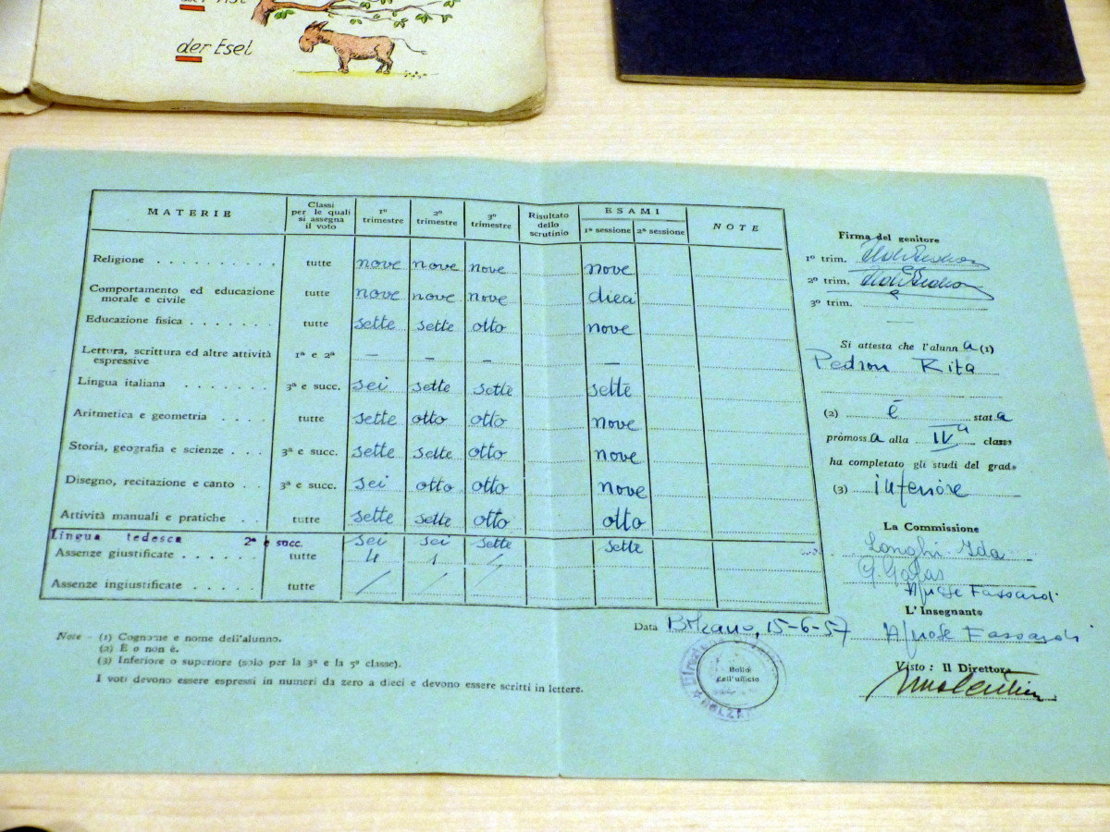 der Esel
MATERIE
Classi per le quali si assegna il voto
1º trimestre
2º trimestre
3º trimestre
Risultato dello scrutinio
ESAMI
1ª sessione 2ª sessione
NOTE
Religione tutte nove nove nove nove
Comportamento ed educazione
morale e civile tutte nove nove nove dieci
Educazione fisica tutte sette sette otto nove
Lettura, scrittura ed altre attività
espressive 1ª e 2ª – – – –
Lingua italiana 3ª e succ. sei sette sette sette
Aritmetica e geometria tutte sette otto otto nove
Storia, geografia e scienze 3ª e succ. sette sette otto nove
Disegno, recitazione e canto 3ª e succ. sei otto otto nove
Attività manuali e pratiche tutte sette sette otto otto
Lingua tedesca 2ª e succ. sei sei sette sette
Assenze giustificate tutte 4 1 /
Assenze ingiustificate tutte / / /
Note - (1) Cognome e nome dell'alunno.
(2) È o non è.
(3) Inferiore o superiore (solo per la 3ª e la 5ª classe).
I voti devono essere espressi in numeri da zero a dieci e devono essere scritti in lettere.
Data Bolzano, 15-6-57
Bollo
dell'ufficio
BOLZANO
Firma del genitore
1º trim.
2º trim.
3º trim.
Si attesta che l'alunna (1)
Pedron Rita
(2) è stata
promossa alla IVª classe
ha completato gli studi del grado
(3) inferiore
La Commissione
Longhi Ida
L'Insegnante
Visto: Il Direttore